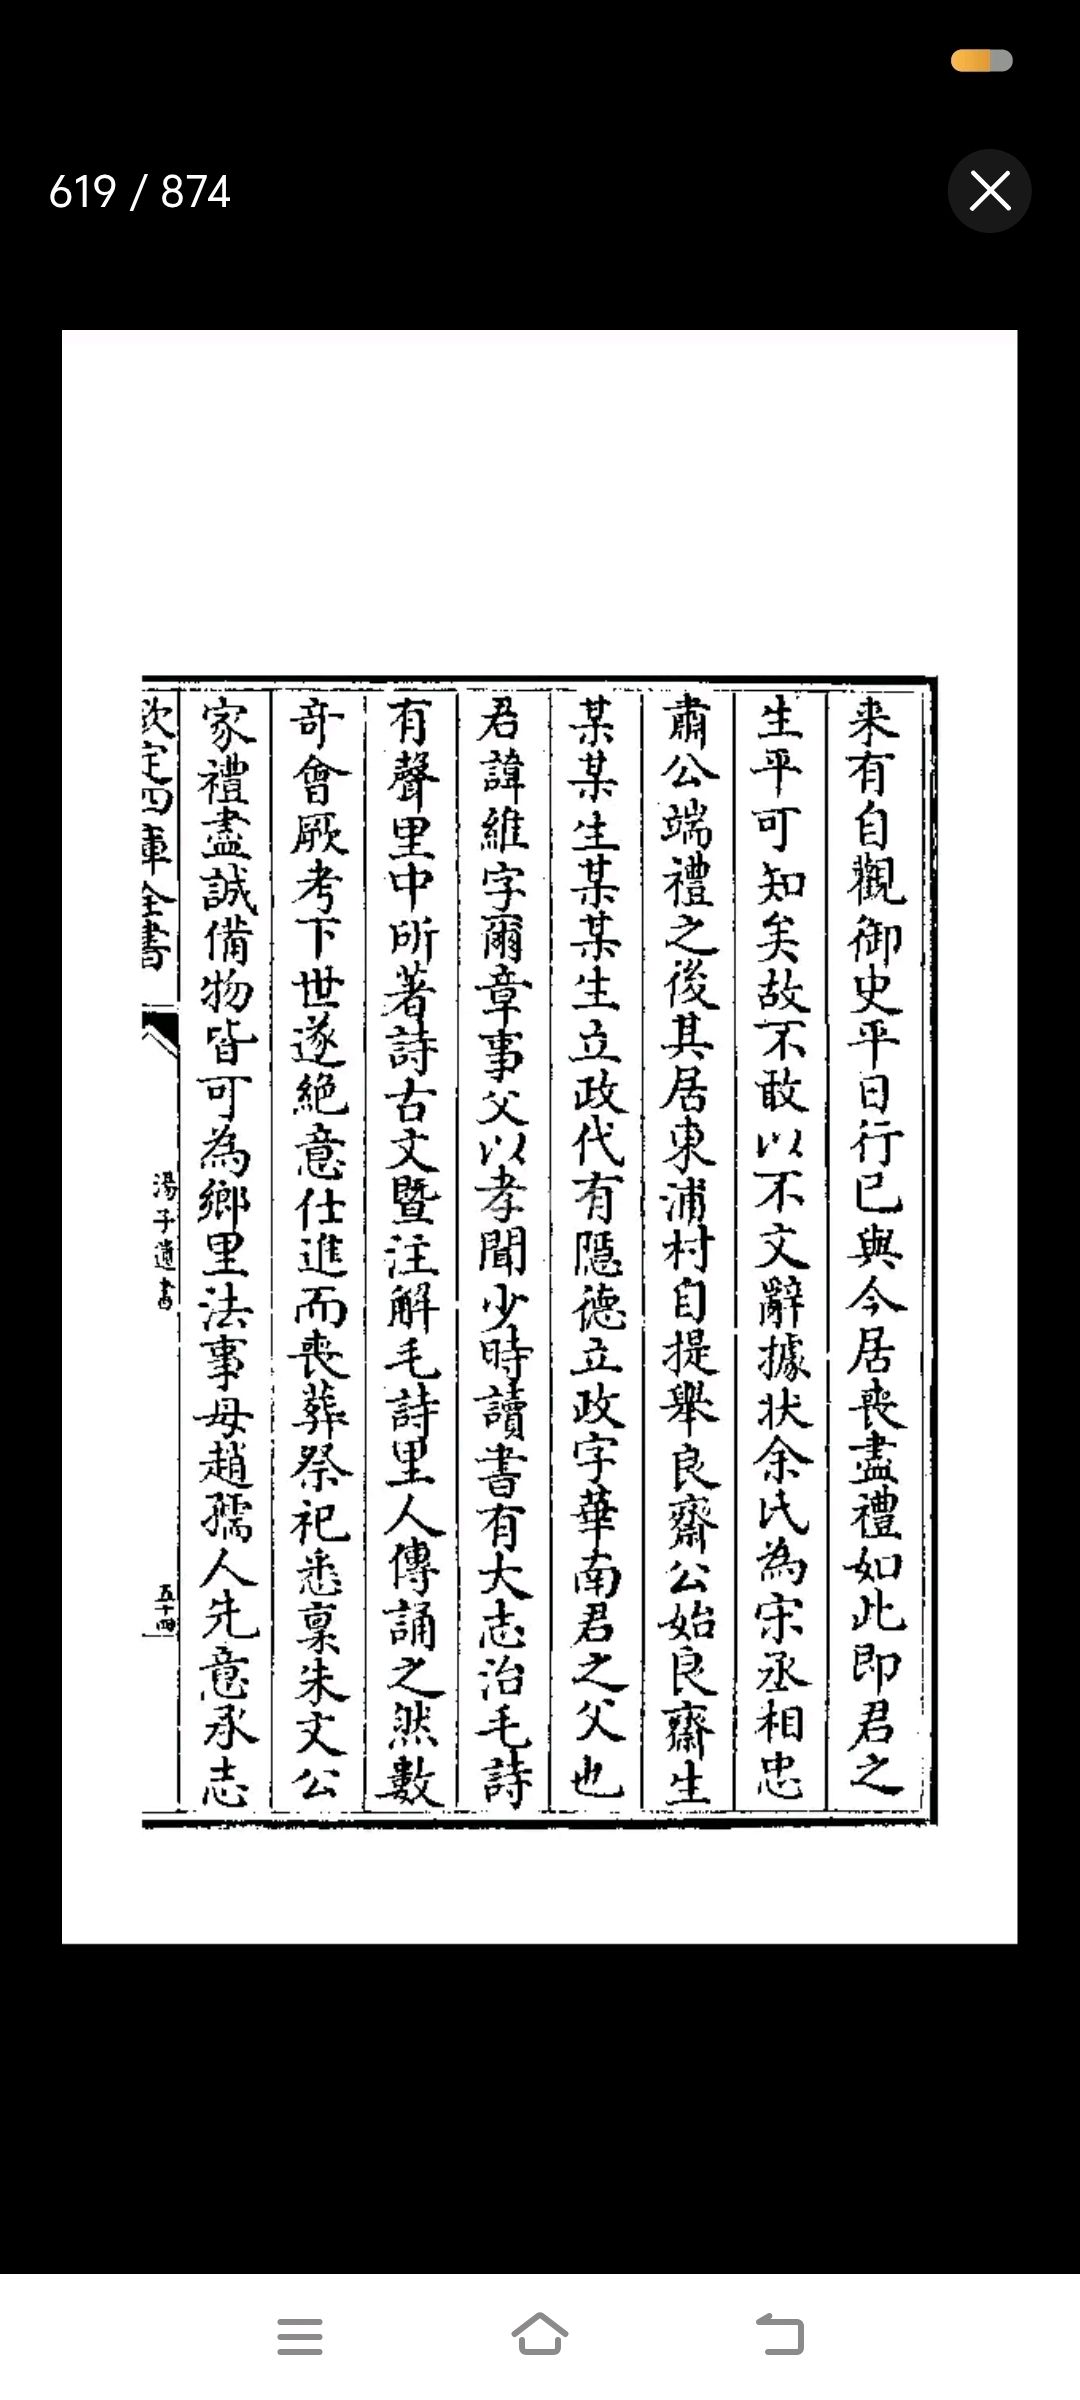 619 / 874
来有自觀御史平日行已與今居喪盡禮如此即君之
生平可知矣故不敢以不文辭據状余氏為宋丞相忠
肅公端禮之後其居東浦村自提舉良齋公始良齋生
某某生某某生立政代有隱德立政字華南君之父也
君諱維字爾章事父以孝聞少時讀書有大志治毛詩
有聲里中所著詩古文暨注解毛詩里人傳誦之然數
竒會厥考下世遂絕意仕進而喪葬祭祀悉稟朱文公
家禮盡誠備物皆可為鄉里法事母趙孺人先意承志
欽定四庫全書
湯子遺書
五十四